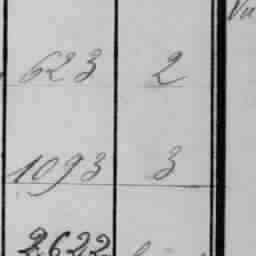 623 2
1093 3
2622